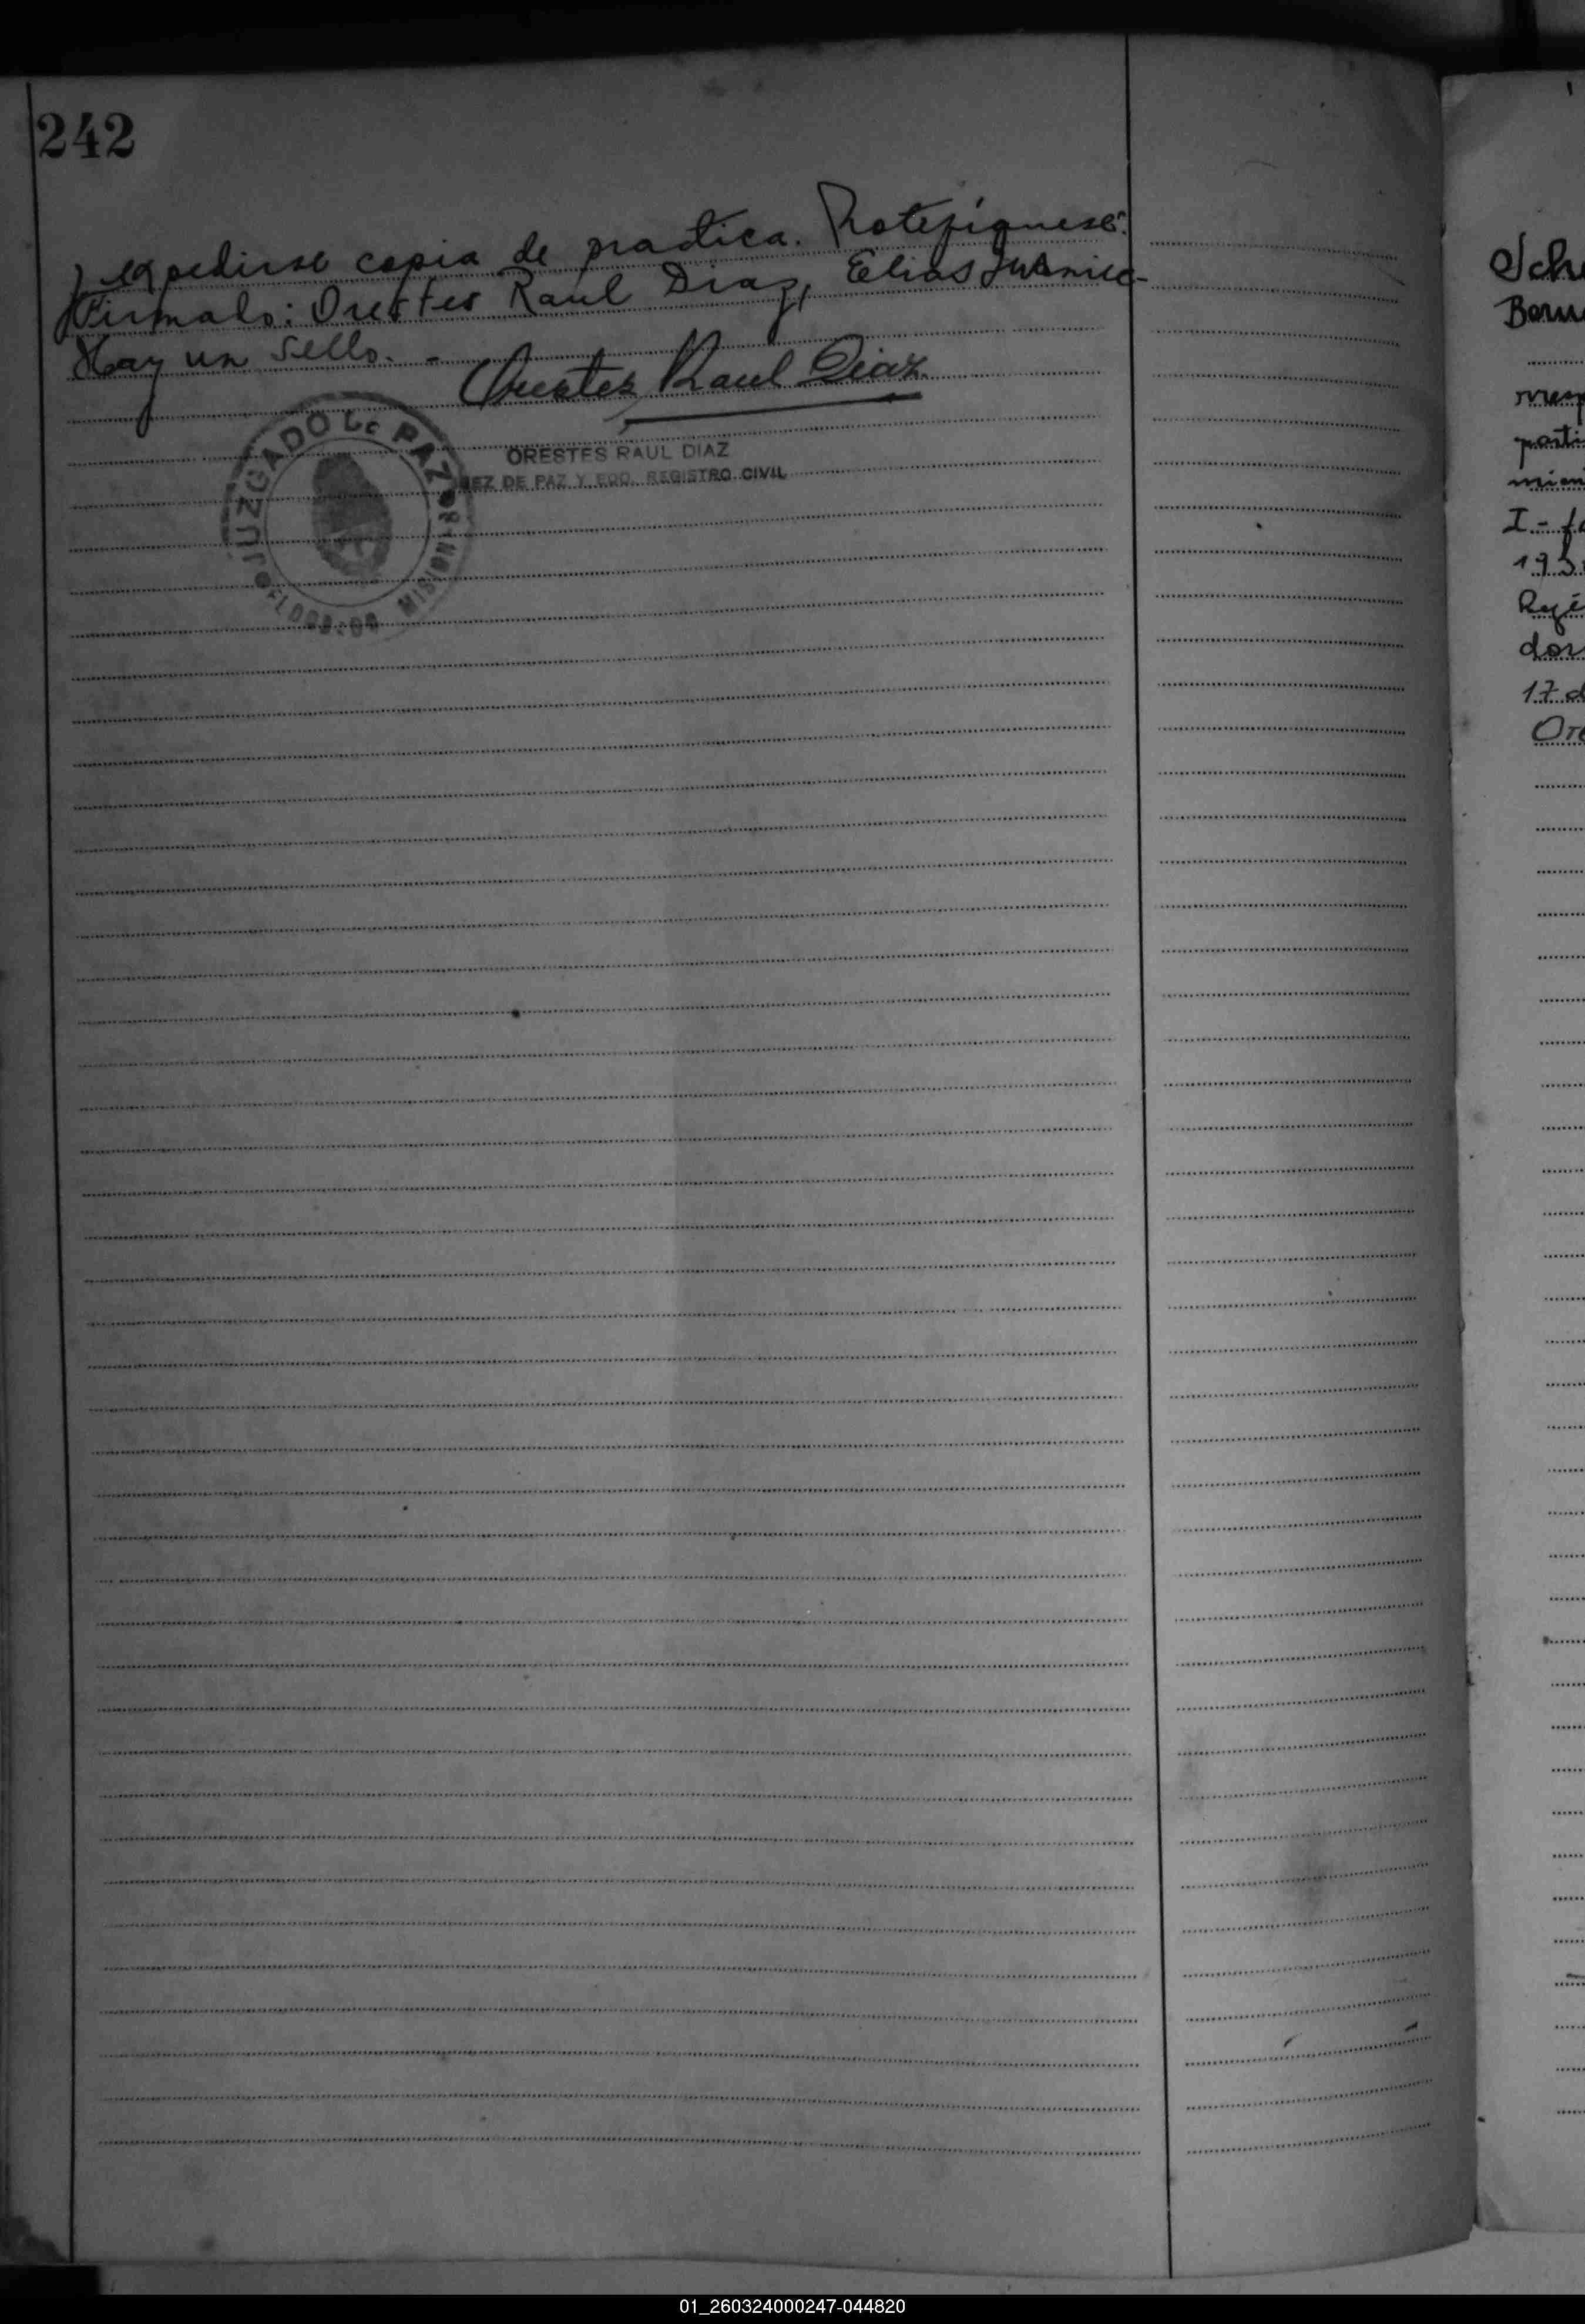 242
y expedirse copia de practica. Notefiquese.
Firmalo: Orestes Raul Diaz, Elias
Hay un Sello. -
Orestes Raul Diaz
JUZGADO DE PAZ
MISIONES
ORESTES RAUL DIAZ
JUEZ DE PAZ Y EDO. REGISTRO CIVIL
Sch
Bern
rresp
parti
mien
I.-
193
Regi
dos
17 d
Ore
01_260324000247-044820